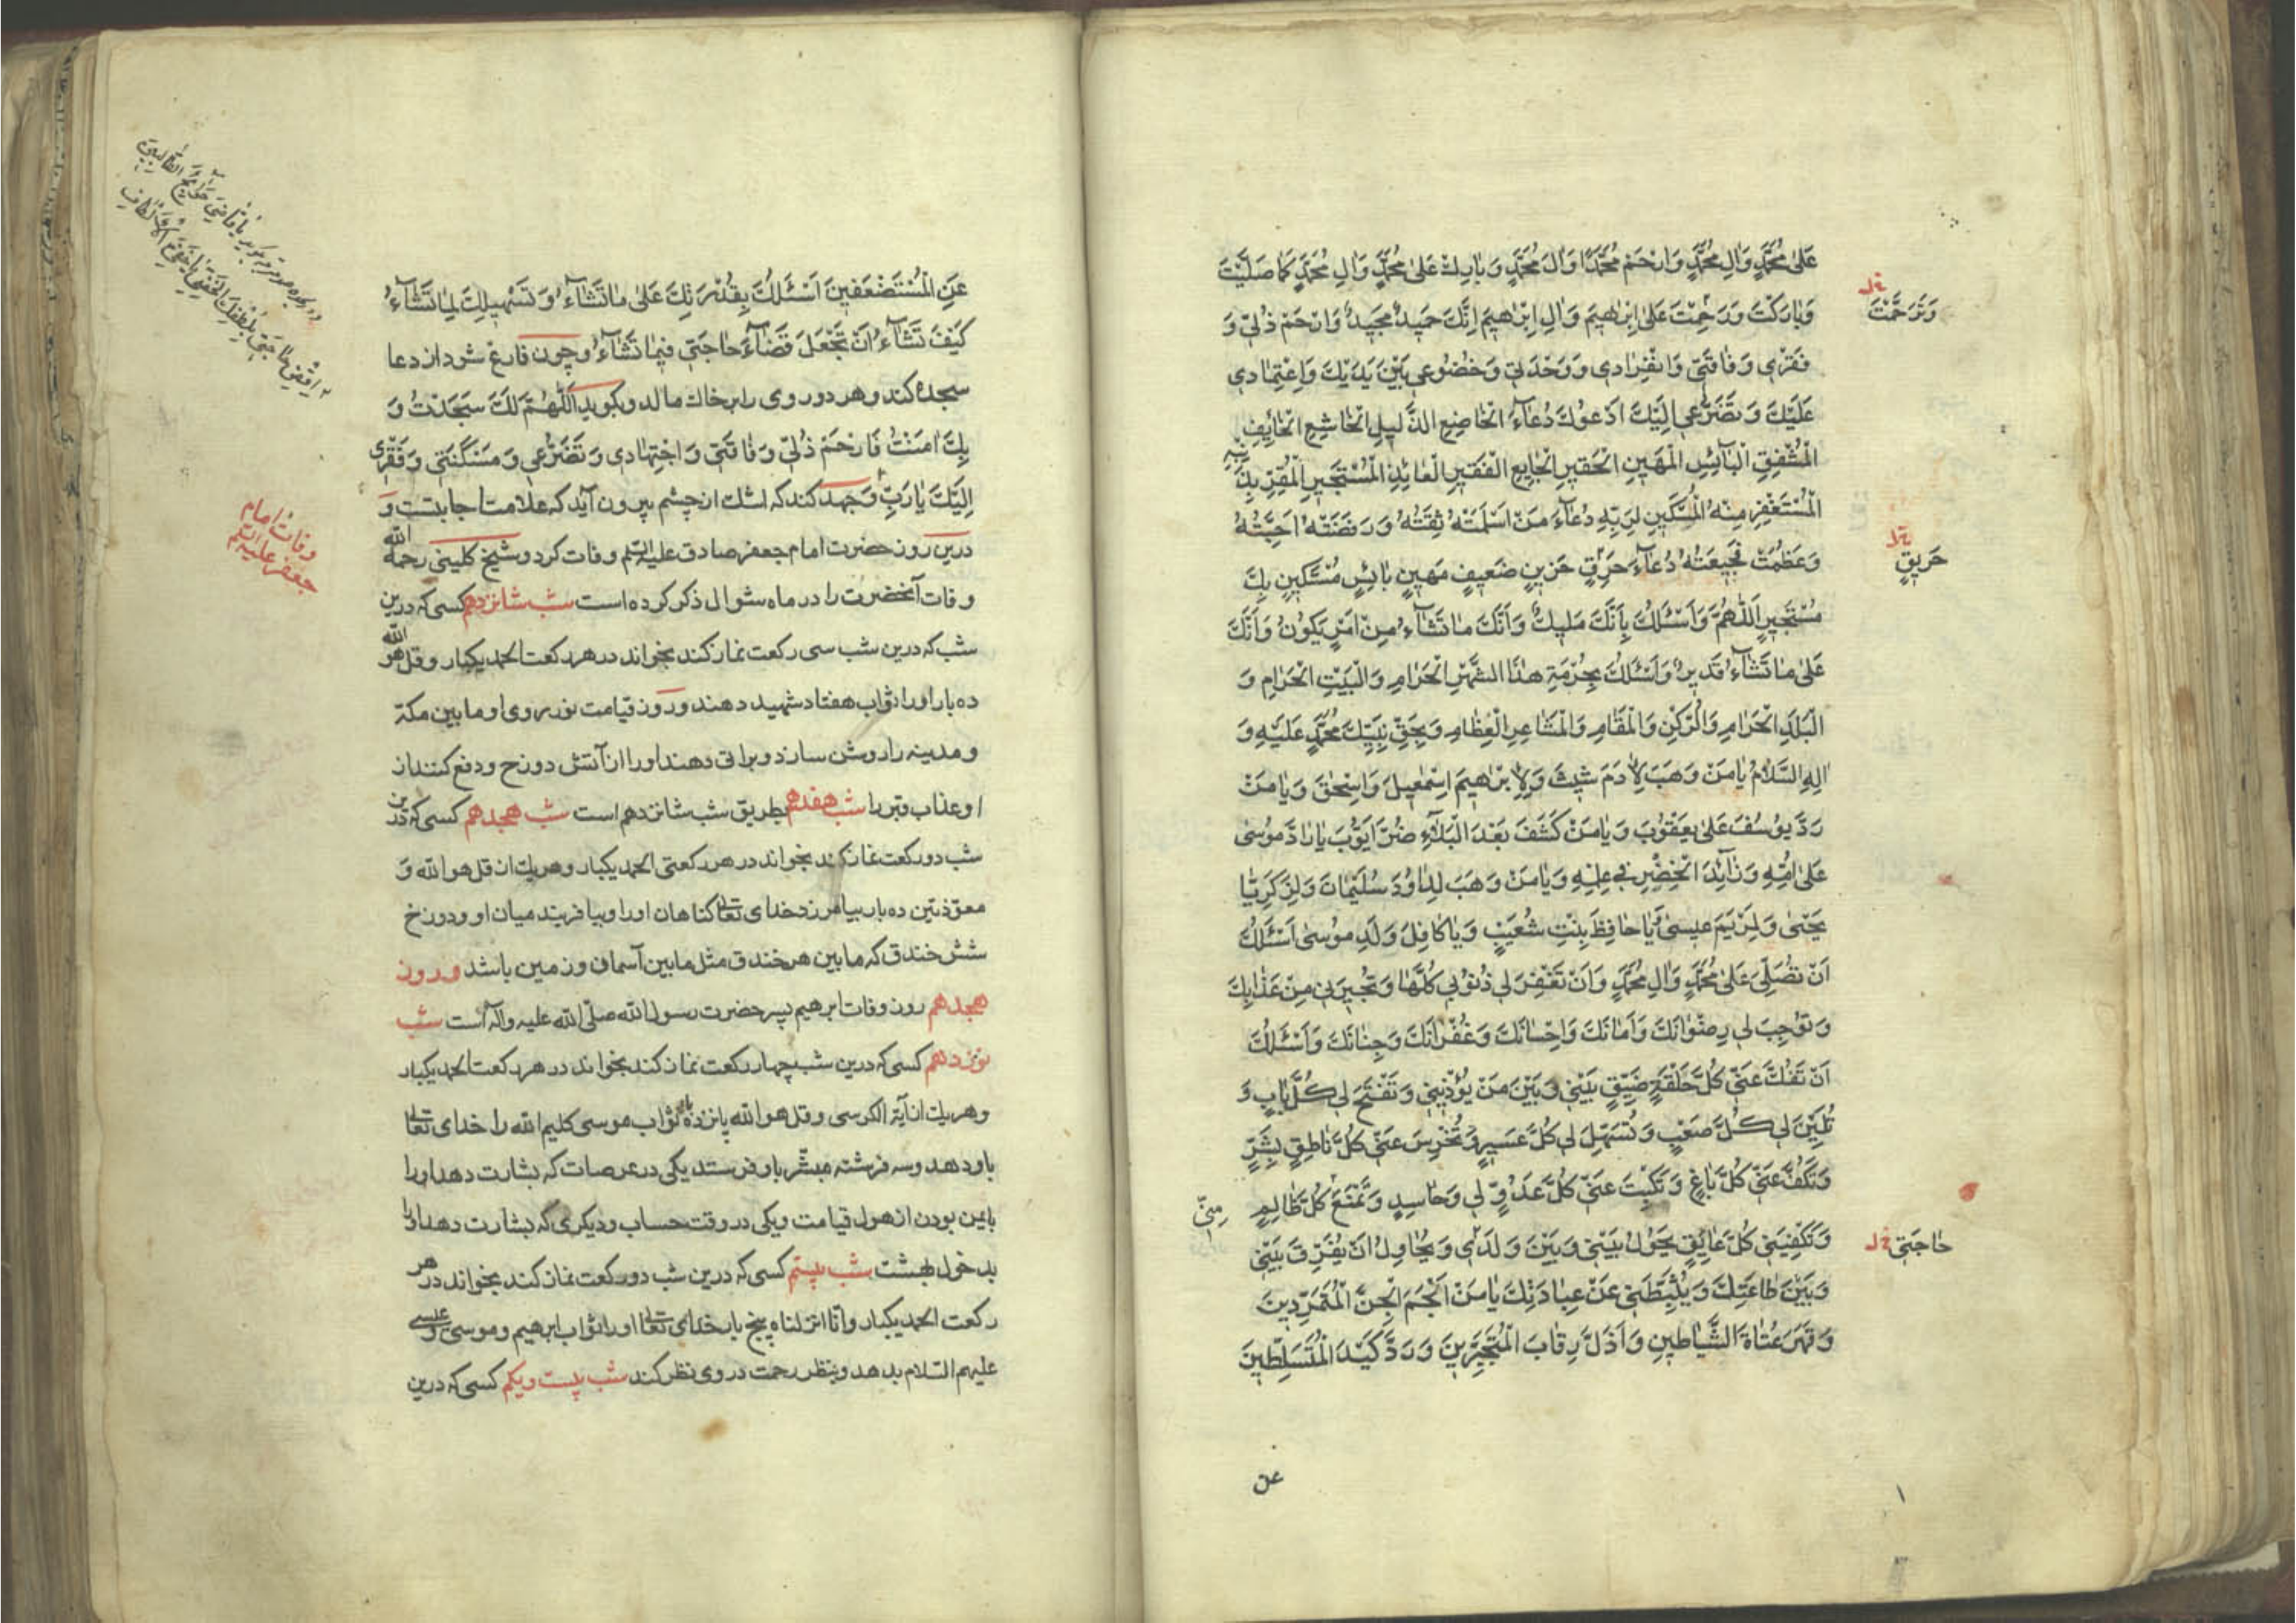 عَلىٰ مُحَمَّدٍ وَاٰلِ مُحَمَّدٍ وَارْحَمْ مُحَمَّدًا وَاٰلَ مُحَمَّدٍ وَبٰارِكْ عَلىٰ مُحَمَّدٍ وَاٰلِ مُحَمَّدٍ كَمٰا صَلَّيْتَ
وَبٰارَكْتَ وَرَحِمْتَ عَلىٰ اِبْرٰهيمَ وَاٰلِ اِبْرٰهيمَ اِنَّكَ حَميدٌ مَجيدٌ وَارْحَمْ ذُلّي وَ
وَتَرَحَّمْتَ خل
فَقْري وَفٰاقَتي وَانْفِرٰادي وَوَحْدَتي وَخُضُوعي بَيْنَ يَدَيْكَ وَاعْتِمٰادي
عَلَيْكَ وَتَضَرُّعي اِلَيْكَ اَدْعُوكَ دُعٰاءَ الْخٰاضِعِ الذَّليلِ الْخٰاشِعِ الْخٰائِفِ
الْمُشْفِقِ الْبٰائِسِ الْمَهينِ الْحَقيرِ الْجٰايِعِ الْفَقيرِ الْعٰائِذِ الْمُسْتَجيرِ الْمُقِرِّ بِذَنْبِهِ
الْمُسْتَغْفِرِ مِنْهُ الْمُسْتَكينِ لِرَبِّهِ دُعٰاءَ مَنْ اَسْلَمَتْهُ ثِقَتُهُ وَرَفَضَتْهُ اَحِبَّتُهُ
وَعَظُمَتْ فَجيعَتُهُ دُعٰاءَ حَرِقٍ حَزينٍ ضَعيفٍ مَهينٍ بٰائِسٍ مُسْتَكينٍ بِكَ
حَريقٍ خل
مُسْتَجيرٍ اَللّٰهُمَّ وَاَسْئَلُكَ بِاَنَّكَ مَليكٌ وَاَنَّكَ مٰا تَشٰاءُ مِنْ اَمْرٍ يَكُونُ وَاَنَّكَ
عَلىٰ مٰا تَشٰاءُ قَديرٌ وَاَسْئَلُكَ بِحُرْمَةِ هٰذَا الشَّهْرِ الْحَرٰامِ وَالْبَيْتِ الْحَرٰامِ وَ
الْبَلَدِ الْحَرٰامِ وَالرُّكْنِ وَالْمَقٰامِ وَالْمَشٰاعِرِ الْعِظٰامِ وَبِحَقِّ نَبِيِّكَ مُحَمَّدٍ عَلَيْهِ وَ
اٰلِهِ السَّلٰامُ يٰا مَنْ وَهَبَ لِاٰدَمَ شَيْثَ وَلِاِبْرٰهيمَ اِسْمٰعيلَ وَاِسْحٰقَ وَيٰا مَنْ
رَدَّ يُوسُفَ عَلىٰ يَعْقُوبَ وَيٰا مَنْ كَشَفَ بَعْدَ الْبَلٰاءِ ضُرَّ اَيُّوبَ يٰا رٰادَّ مُوسىٰ
عَلىٰ اُمِّهِ وَزٰائِدَ الْخِضْرِ في عِلْمِهِ وَيٰا مَنْ وَهَبَ لِدٰاوُدَ سُلَيْمٰانَ وَلِزَكَرِيّٰا
يَحْيىٰ وَلِمَرْيَمَ عيسىٰ يٰا حٰافِظَ بِنْتِ شُعَيْبٍ وَيٰا كٰافِلَ وَلَدِ مُوسىٰ اَسْئَلُكَ
اَنْ تُصَلِّيَ عَلىٰ مُحَمَّدٍ وَاٰلِ مُحَمَّدٍ وَاَنْ تَغْفِرَ لي ذُنُوبي كُلَّهٰا وَتُجيرَني مِنْ عَذٰابِكَ
وَتُوجِبَ لي رِضْوٰانَكَ وَاَمٰانَكَ وَاِحْسٰانَكَ وَغُفْرٰانَكَ وَجِنٰانَكَ وَاَسْئَلُكَ
اَنْ تَفُكَّ عَنّي كُلَّ حَلْقَةِ ضَيِّقٍ بَيْني وَبَيْنَ مَنْ يُؤْذيني وَتَفْتَحَ لي كُلَّ بٰابٍ وَ
تُلَيِّنَ لي كُلَّ صَعْبٍ وَتُسَهِّلَ لي كُلَّ عَسيرٍ وَتُخْرِسَ عَنّي كُلَّ نٰاطِقٍ بِشَرٍّ
وَتَكُفَّ عَنّي كُلَّ بٰاغٍ وَتَكْبِتَ عَنّي كُلَّ عَدُوٍّ لي وَحٰاسِدٍ وَتَمْنَعَ كُلَّ ظٰالِمٍ
مِنّي
وَتَكْفِيَني كُلَّ عٰايِقٍ يَحُولُ بَيْني وَبَيْنَ وَلَدي وَيُحٰاوِلُ اَنْ يُفَرِّقَ بَيْني
حٰاجَتي خل
وَبَيْنَ طٰاعَتِكَ وَيُثَبِّطَني عَنْ عِبٰادَتِكَ يٰا مَنْ اَلْجَمَ الْجِنَّ الْمُتَمَرِّدينَ
وَقَهَرَ عُتٰاةَ الشَّيٰاطينِ وَاَذَلَّ رِقٰابَ الْمُتَجَبِّرينَ وَرَدَّ كَيْدَ الْمُتَسَلِّطينَ
عن
عَنِ الْمُسْتَضْعَفينَ اَسْئَلُكَ بِقُدْرَتِكَ عَلىٰ مٰا تَشٰاءُ وَتَسْهيلِكَ لِمٰا تَشٰاءُ
كَيْفَ تَشٰاءُ اَنْ تَجْعَلَ قَضٰاءَ حٰاجَتي فيمٰا تَشٰاءُ و چون فارغ شود از دعا
سجده كند و هر دو روى را بر خاك مالد و بگويد اَللّٰهُمَّ لَكَ سَجَدْتُ وَ
بِكَ اٰمَنْتُ فَارْحَمْ ذُلّي وَفٰاقَتي وَاجْتِهٰادي وَتَضَرُّعي وَمَسْكَنَتي وَفَقْري
اِلَيْكَ يٰا رَبِّ و جهد كند كه اشك از چشم بيرون آيد كه علامت اجابتست و
درين روز حضرت امام جعفر صادق عليه السلم وفات كرد و شيخ كلينى رحمه الله
وفات امام
جعفر عليه السلم
وفات آنحضرت را در ماه شوال ذكر كرده است شب شانزدهم كسى كه درين
شب كه درين شب سى ركعت نماز كند بخواند در هر ركعت الحمد يكبار و قل هو الله
ده بار او را ثواب هفتاد شهيد دهند و روز قيامت نور روى او ما بين مكة
و مدينه را روشن سازد و براتى دهند او را از آتش دوزخ و دفع كنند از
او عذاب قبر را شب هفدهم بطريق شب شانزدهم است شب هجدهم كسى كه درين
شب دو ركعت نماز كند بخواند در هر ركعتى الحمد يكبار و هر يك از قل هو الله و
معوّذتين ده بار بيامرزد خداى تعالى گناهان او را و بيافريند ميان او و دوزخ
شش خندق كه ما بين هر خندق مثل ما بين آسمان و زمين باشد و روز
هجدهم روز وفات ابرهيم پسر حضرت رسول الله صلّى الله عليه وآله است شب
نوزدهم كسى كه درين شب چهار ركعت نماز كند بخواند در هر ركعت الحمد يكبار
و هر يك از آية الكرسى و قل هو الله پانزده بار ثواب موسى كليم الله را خداى تعالى
باو دهد و سه فرشته مبشّر باو فرستد يكى در عرصات كه بشارت دهد او را
بايمن بودن از هول قيامت و يكى در وقت حساب و ديگرى كه بشارت دهد او را
بدخول بهشت شب بيستم كسى كه درين شب دو ركعت نماز كند بخواند در هر
ركعت الحمد يكبار و انّا انزلناه پنج بار خداى تعالى او را ثواب ابرهيم و موسى و عيسى
عليهم السّلام بدهد و بنظر رحمت در وى نظر كند شب بيست و يكم كسى كه درين